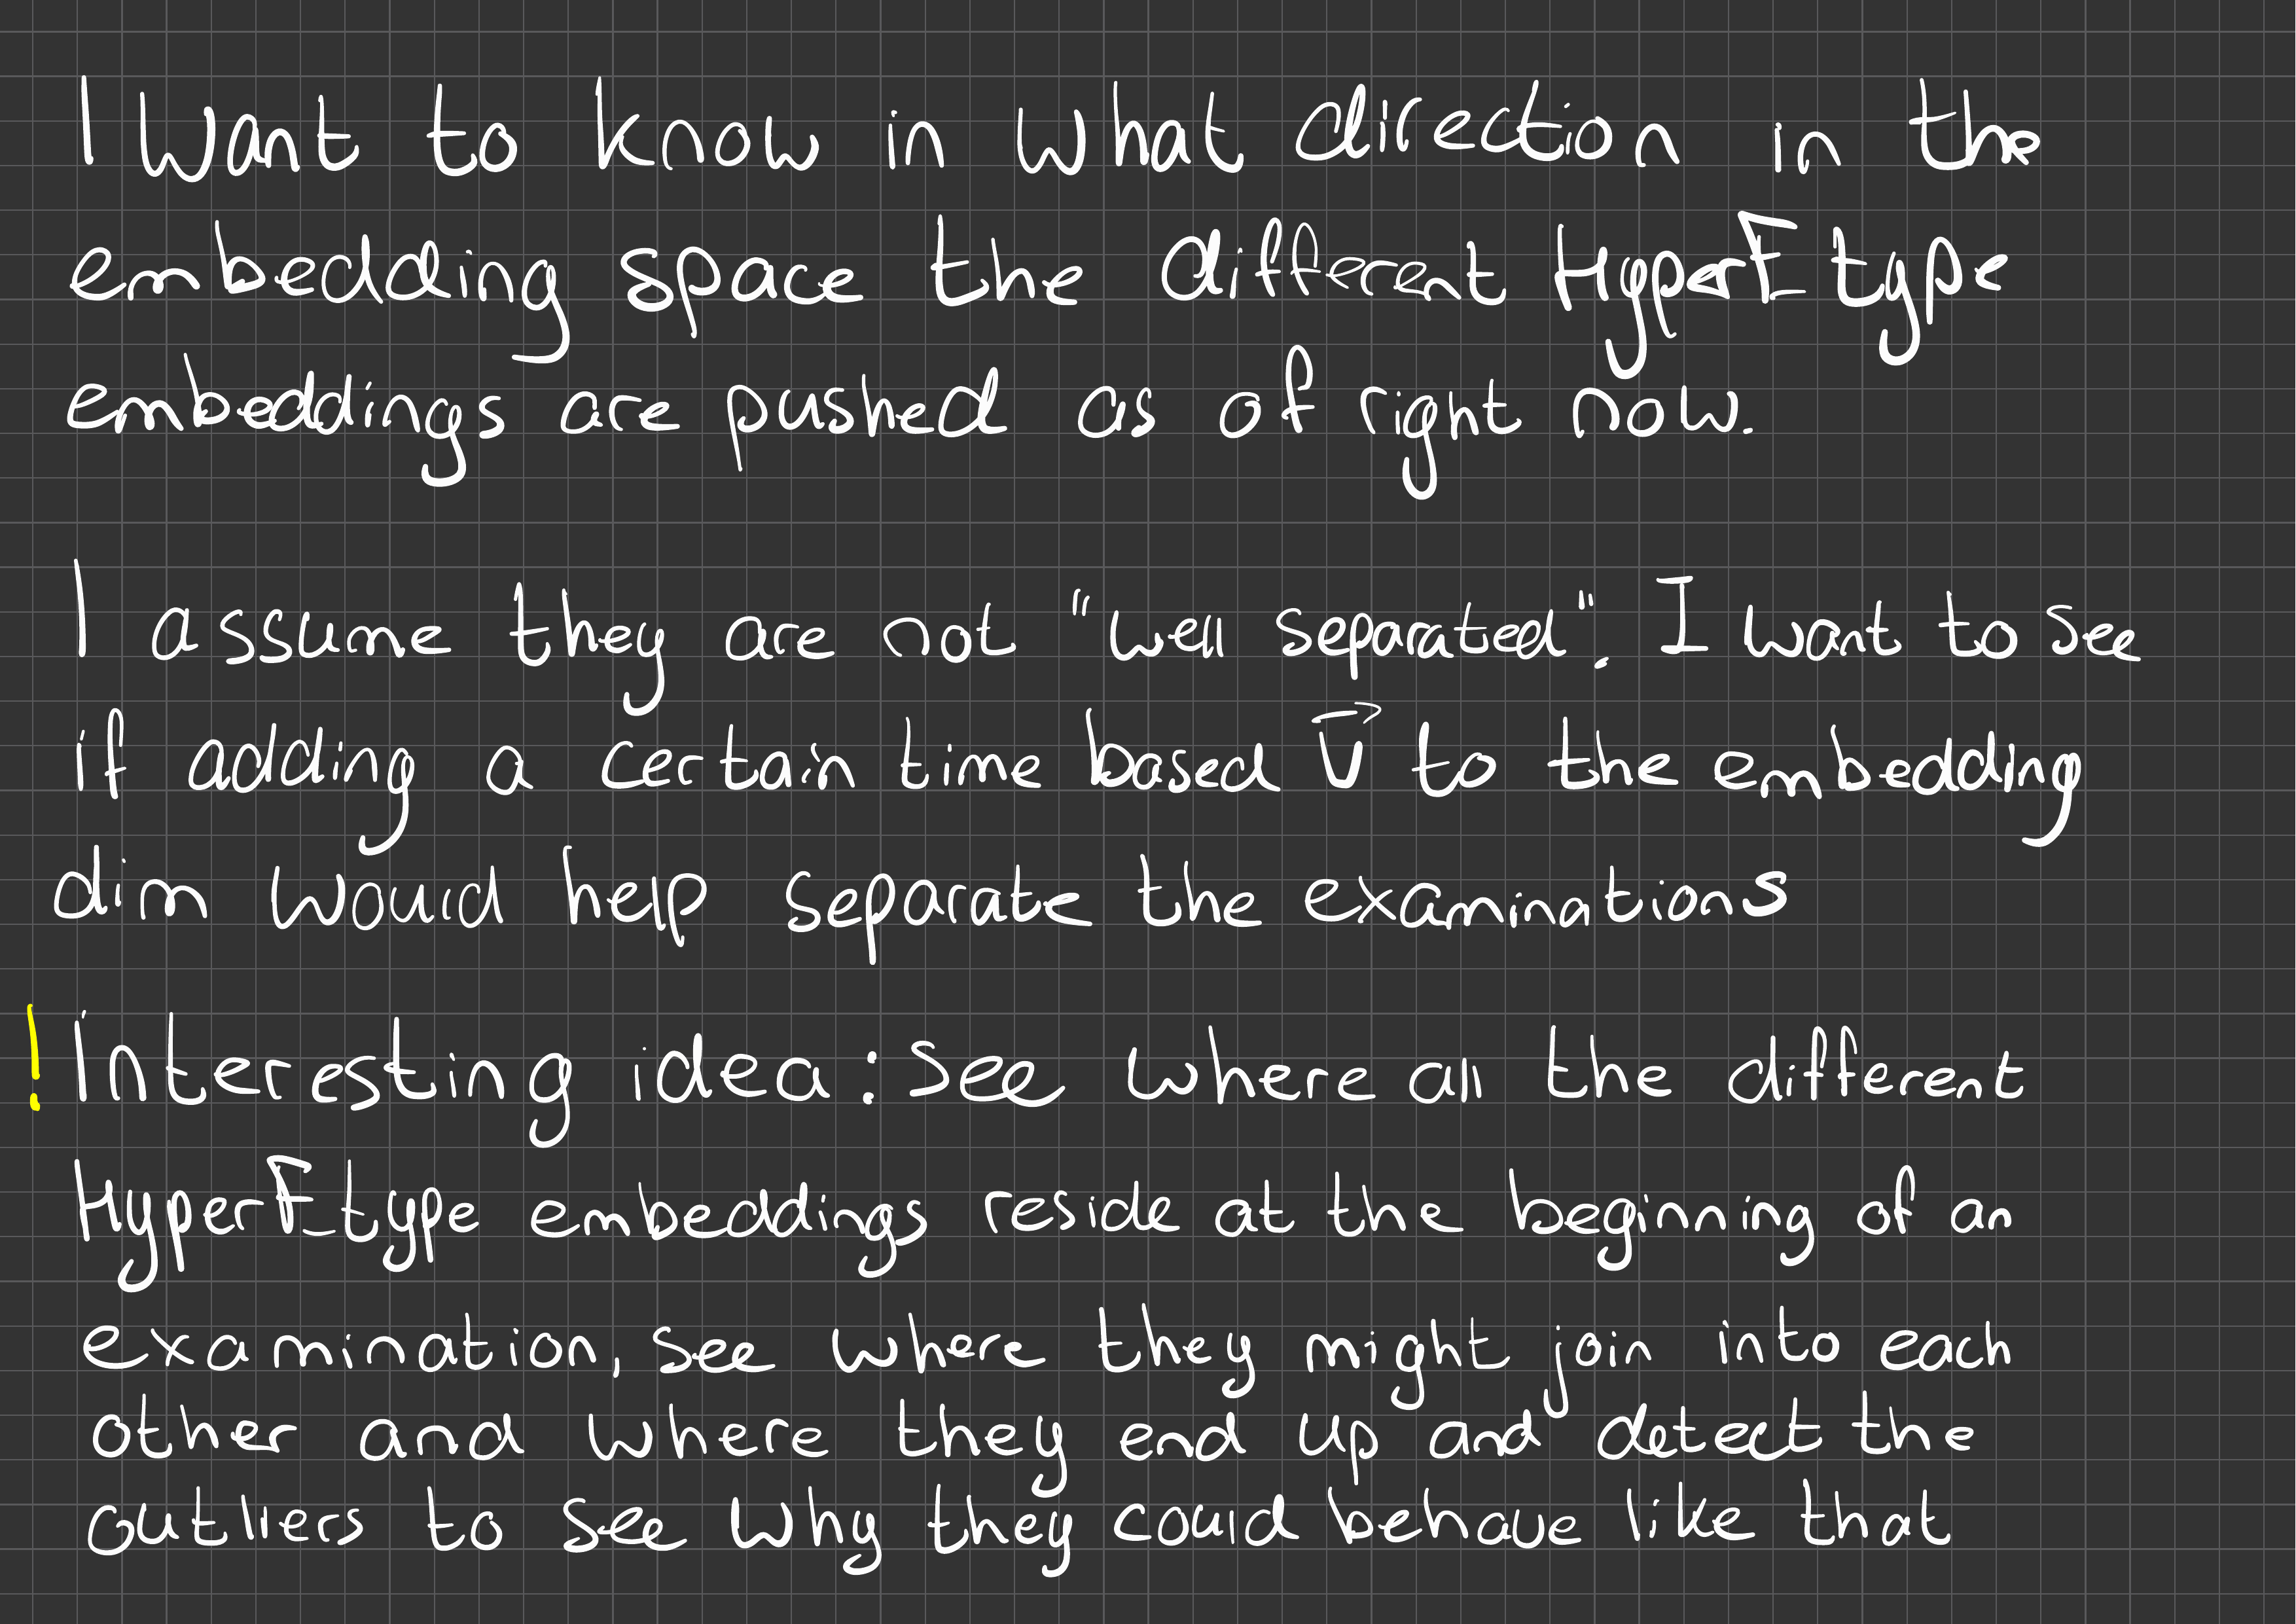 I want to know in what direction in the
embedding space the different HyperF type
embeddings are pushed as of right now.
I assume they are not "well separated". I want to see
if adding a certain time based v⃗ to the embedding
dim would help separate the examinations
! Interesting idea: See where all the different
HyperF type embeddings reside at the beginning of an
examination, see where they might join into each
other and where they end up and detect the
outliers to see why they could behave like that